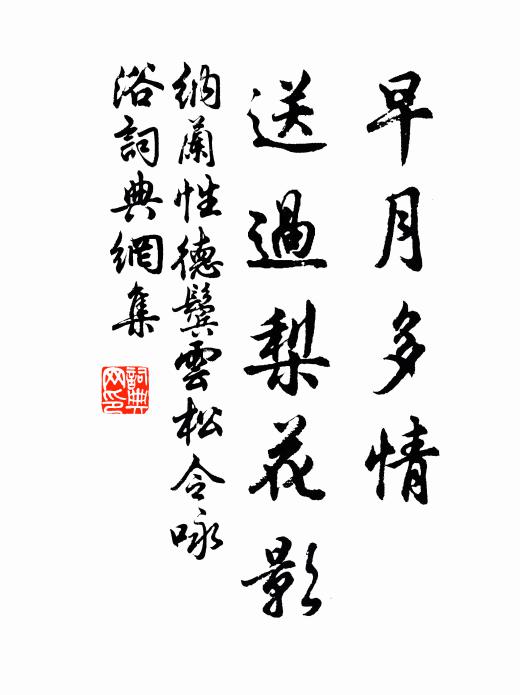 早月多情
送過梨花影
納蘭性德鬢雲松令咏
浴詞典網集
詞典网印